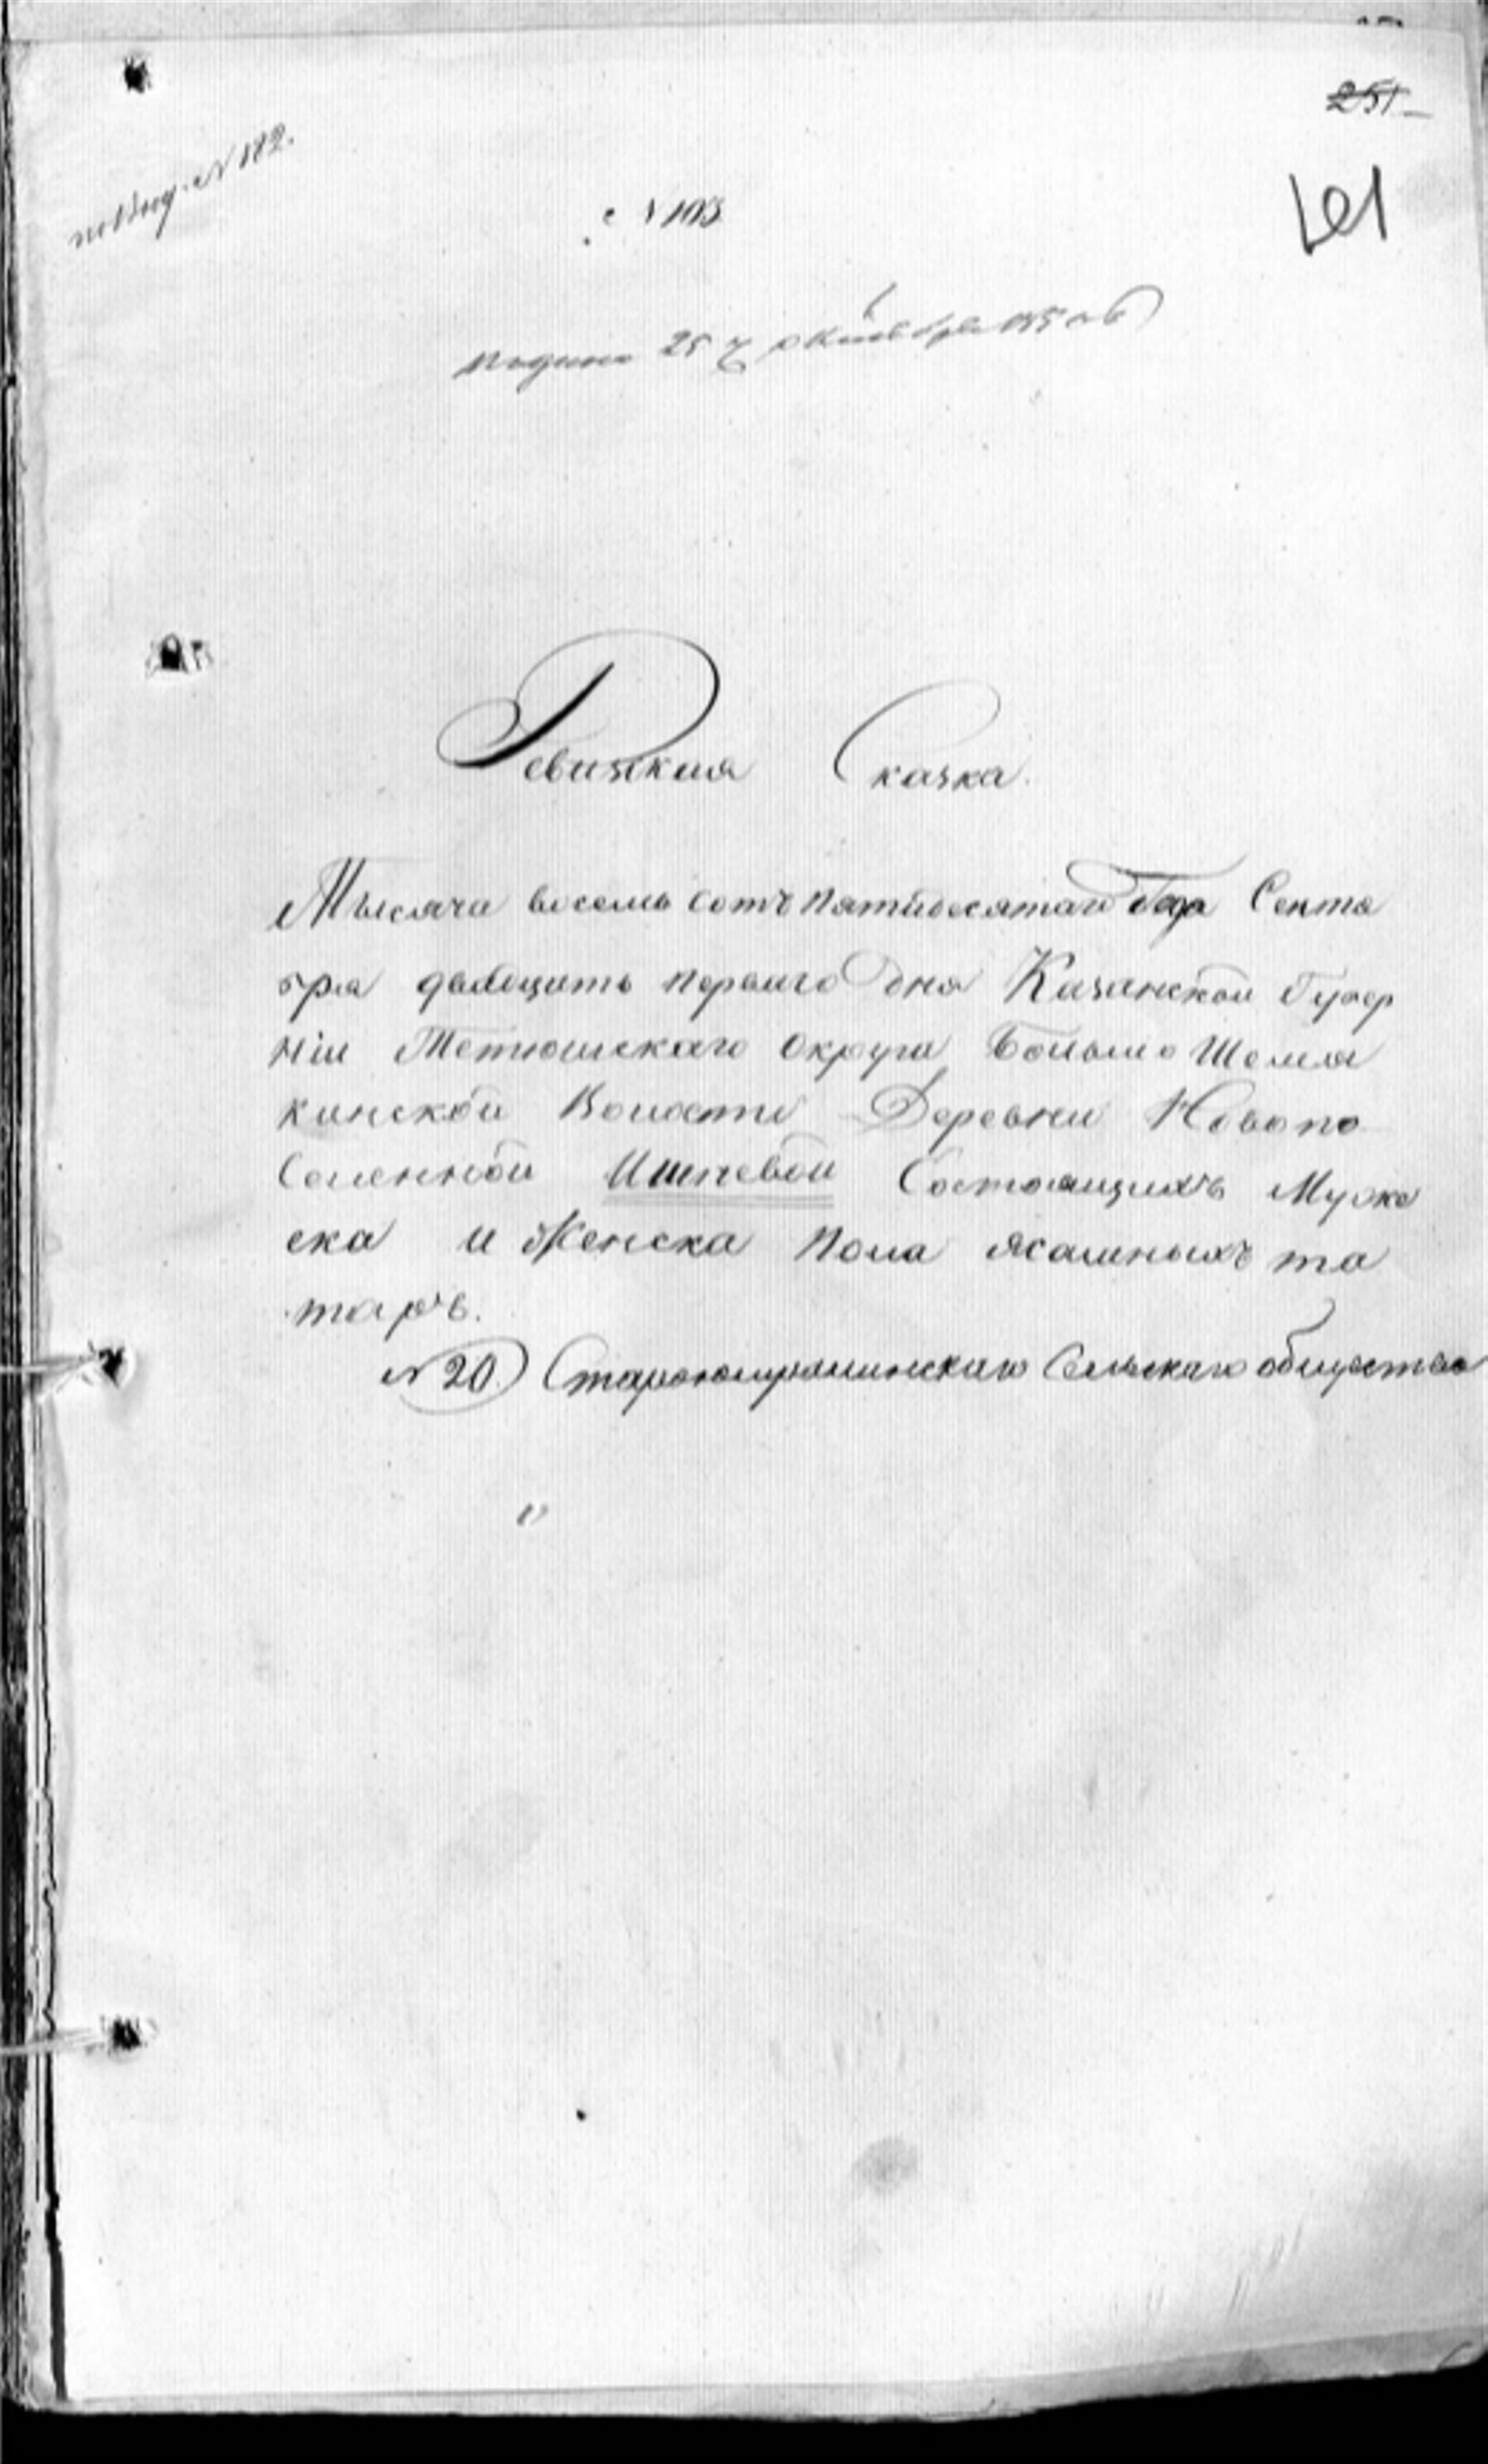 251
по вѣд. № 182.
№ 103
161
Подана 25 октября 1850
Ревизкия Сказка.
Тысяча восемь сотъ пятидесятаго Года Сентя
бря двадцать перваго дня Казанской Губер
ніи Тетюшскаго Округа Больше Шемя
кинской Волости Деревни Новопо
селенной Ишпевой Состоящихъ Муже
ска и Женска Пола ясашныхъ та
таръ.
№ 20. Сельскаго общества